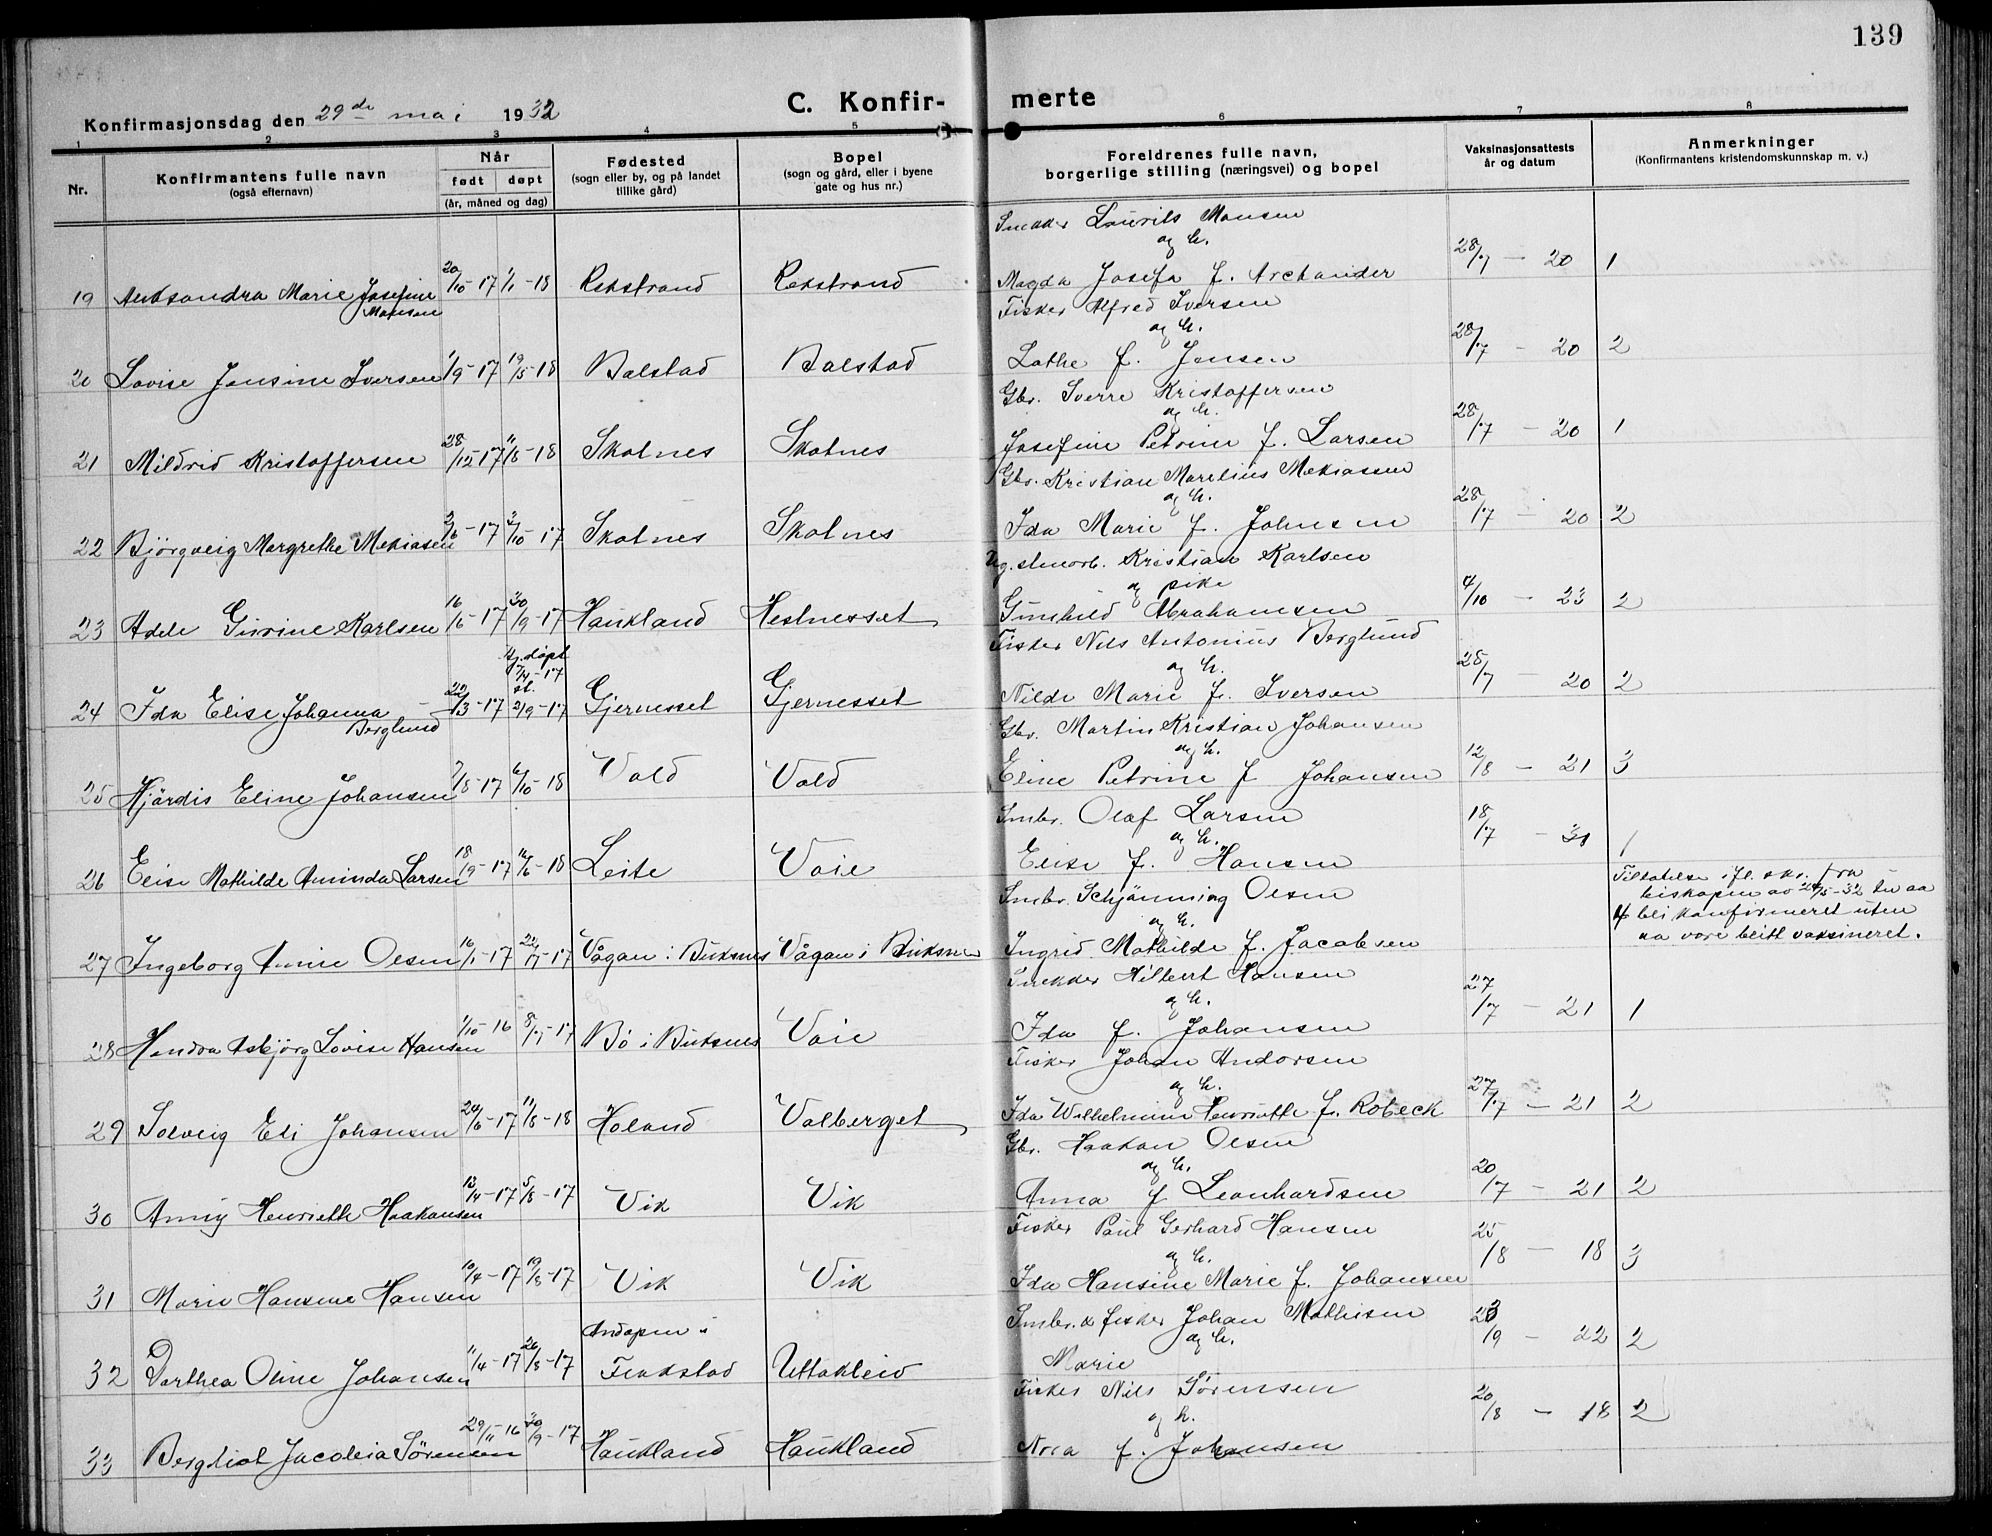 139
Konfirmasjonsdag den 29de mai 1932
C. Konfir- merte
1 2 3 4 5 6 7 8
Nr.
Konfirmantens fulle navn
(også efternavn)
Når
født døpt
(år, måned og dag)
Fødested
(sogn eller by, og på landet
tillike gård)
Bopel
(sogn og gård, eller i byene
gate og hus nr.)
Foreldrenes fulle navn,
borgerlige stilling (næringsvei) og bopel
Vaksinasjonsattests
år og datum
Anmerkninger
(Konfirmantens kristendomskunnskap m. v.)
Laurits Monsen
og h.
19 Marie Josefine Monsen 20/10-17 1/1-18 Rekstrand Rekstrand Magda Josefa f. Archander 28/7 - 20 1
Fisker Alfred Iversen
og h.
20 Lovise Jensine Iversen 1/9-17 19/5-18 Balstad Balstad Lothe f. Jensen 28/7 - 20 2
Gbr. Sverre Kristoffersen
og h.
21 Mildrid Kristoffersen 28/12-17 11/8-18 Skotnes Skotnes Josefine Petrine f. Larsen 28/7 - 20 1
Gbr. Kristian Marelius Mekiassen
og h.
22 Bjørgveig Margrethe Mekiasen 2/6-17 2/10-17 Skotnes Skotnes Ida Marie f. Johnsen 28/7 - 20 2
Kristian Karlsen
og pike
23 Adele Gurine Karlsen 16/6-17 30/9-17 Haukland Hestnesset Gunhild Abrahamsen 4/10 - 23 2
Fisker Nils Antonius Berglund
og h.
24 Ida Elise Johanna Berglund 22/3-17 hj. døpt 7/4-17 st. 2/9-17 Gjernesset Gjernesset Nilde Marie f. Iversen 28/7 - 20 2
Gbr. Martin Kristian Johansen
og h.
25 Hjørdis Eline Johansen 7/8-17 6/10-18 Vold Vold Eline Petrine f Johansen 12/8 - 21 3
Smbr. Olaf Larsen
og h.
26 Elise Mathilde Aminda Larsen 18/9-17 16/6-18 Leite Voie Elise f. Hansen 18/7 - 31 1
Smbr. Schjønning Olsen
og h.
27 Ingeborg Annie Olsen 16/1-17 Vågan i Buksnes Vågan i Buksnes Ingrid Mathilde f. Jacobsen
Tillatelse ifl. skr. fra
biskopen av 24/5-32 til aa
bli konfirmeret uten
aa være blitt vaksineret.
Snekker Hilbert Hansen
og h.
28 Asbjørg Lovise Hansen 1/10-16 Bø i Buksnes Voie Ida f. Johansen 27/7 - 21 1
Fisker Johan Andorsen
og h.
29 Solveig Eli Johansen 24/6-17 11/8-18 Holand Valberget Ida Wilhelmine Henriette f. Robeck 27/7 - 21 2
Gbr. Haakon Olsen
og h.
30 Anny Henriette Haakonsen 13/4-17 5/8-17 Vik Vik Anna f Leonhardsen 20/7 - 21 2
Fisker Paul Gerhard Hansen
og h.
31 Marie Hansine Hansen 10/4-17 19/8-17 Vik Vik Ida Hansine Marie f. Johansen 25/8 - 18 3
Smbr. & fisker Johan Mathisen
og h.
32 Dorthea Oline Johansen 11/4-17 26/8-17 Andopen i Flakstad Uttakleiv Marie 23/9 - 22 2
Fisker Nils Sørensen
og h.
33 Bergliot Jacobsia Sørensen 29/11-16 30/9-17 Haukland Haukland Nora f. Johansen 20/8 - 18 2